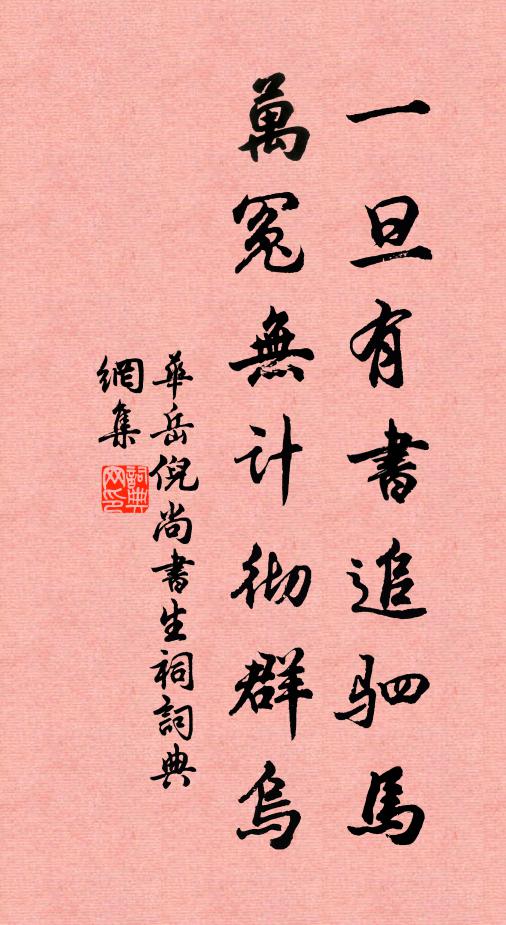 一旦有書追驷馬
萬冤無計彻群烏
華岳倪尚書生祠詞典
網集
詞典
网印